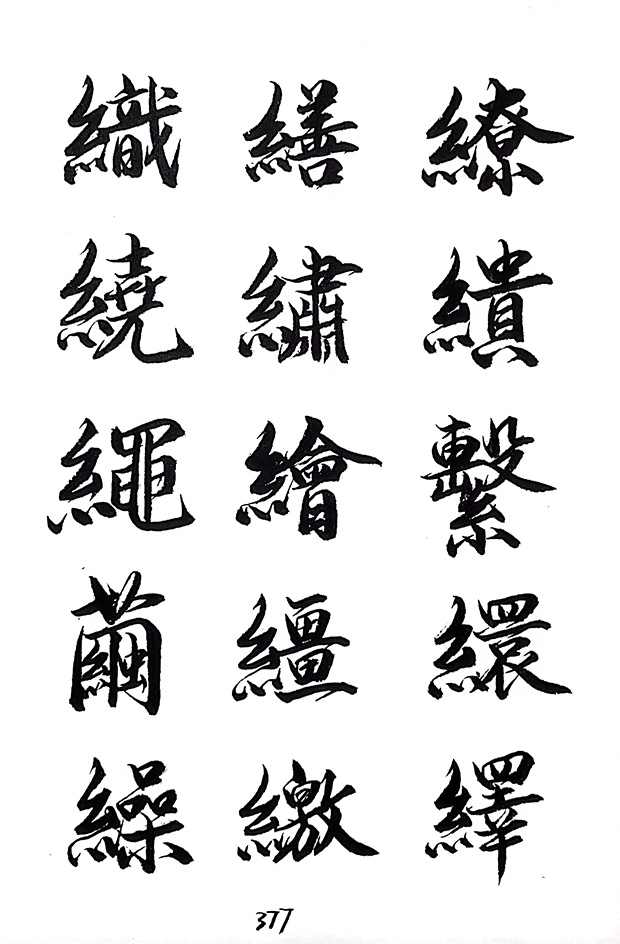 織 繕 繚
繞 繡 繢
繩 繪 繫
繭 繮 繯
繰 繳 繹
377